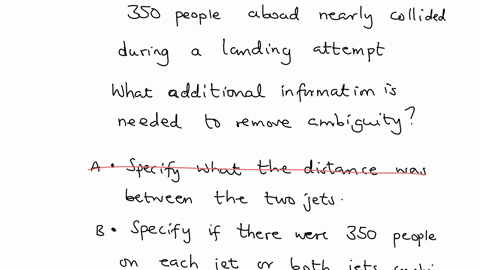 350 people aboad nearly collided
during a landing attempt
What additional information is
needed to remove ambiguity?
A • Specify what the distance was
between the two jets.
B • Specify if there were 350 people
on each jet or both jets